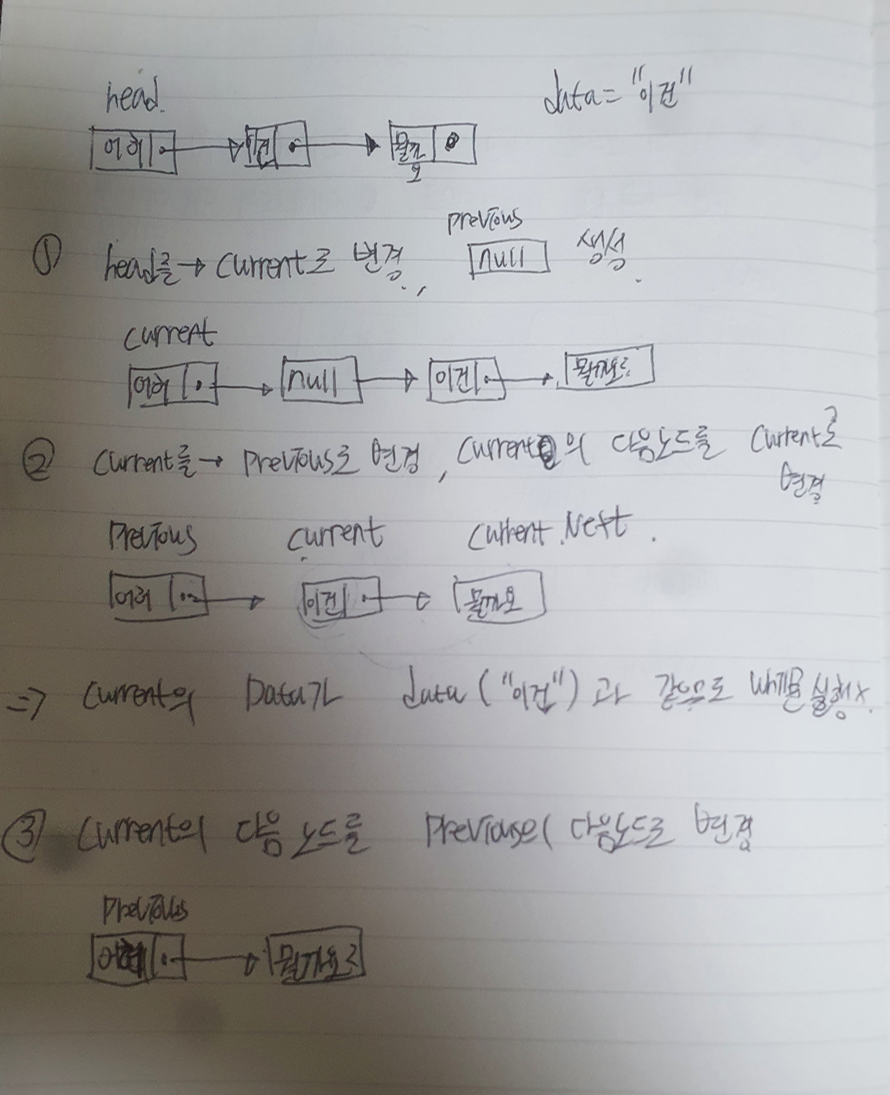 head.
data = "이건"
어허 이건 뭘까요
previous
① head를 → current로 변경., null 생성.
current
어허 null 이건 뭘까요
② current를 → previous로 변경, current의 다음노드를 current로
변경
previous current current.Next.
어허 이건 뭘까요
⇒ current의 Data가 data ("이건")과 같으므로 while문 실행x.
③ current의 다음 노드를 previous의 다음노드로 변경
previous
뭘까요